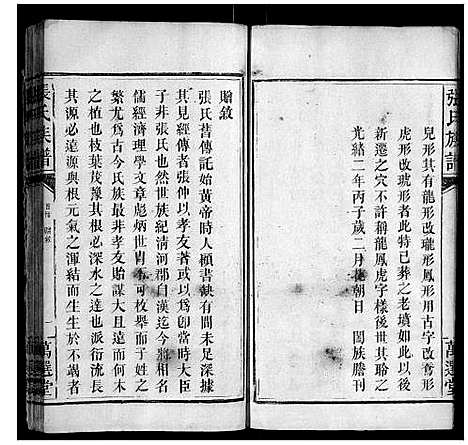 張氏族譜
萬選堂
兒形其有龍形改瓏形鳳形用古字改奪形
虎形改琥形者此特已葬之老墳如此以後
新遷之穴不許稱龍鳳虎字樣後世其聆之
光緒二年丙子歲二月 朝日 闔族謄刊
贈敘
張氏昔傳託始黃帝時人槓書缺有間未足深據
其見經傳者張仲以孝友著或以爲卽當時大臣
子非張氏也然世族紀清河郡自漢迄今將相名
儒經濟理學文章彪炳世冑不可枚舉而于姓之
繁尤爲古今氏族最非孝友貽謀大且遠而何木
之植也枝葉茂豫其根必深水之達也派衍流長
其源必遠源與根元氣之渾結而生生於不竭者
張氏族譜
萬選堂